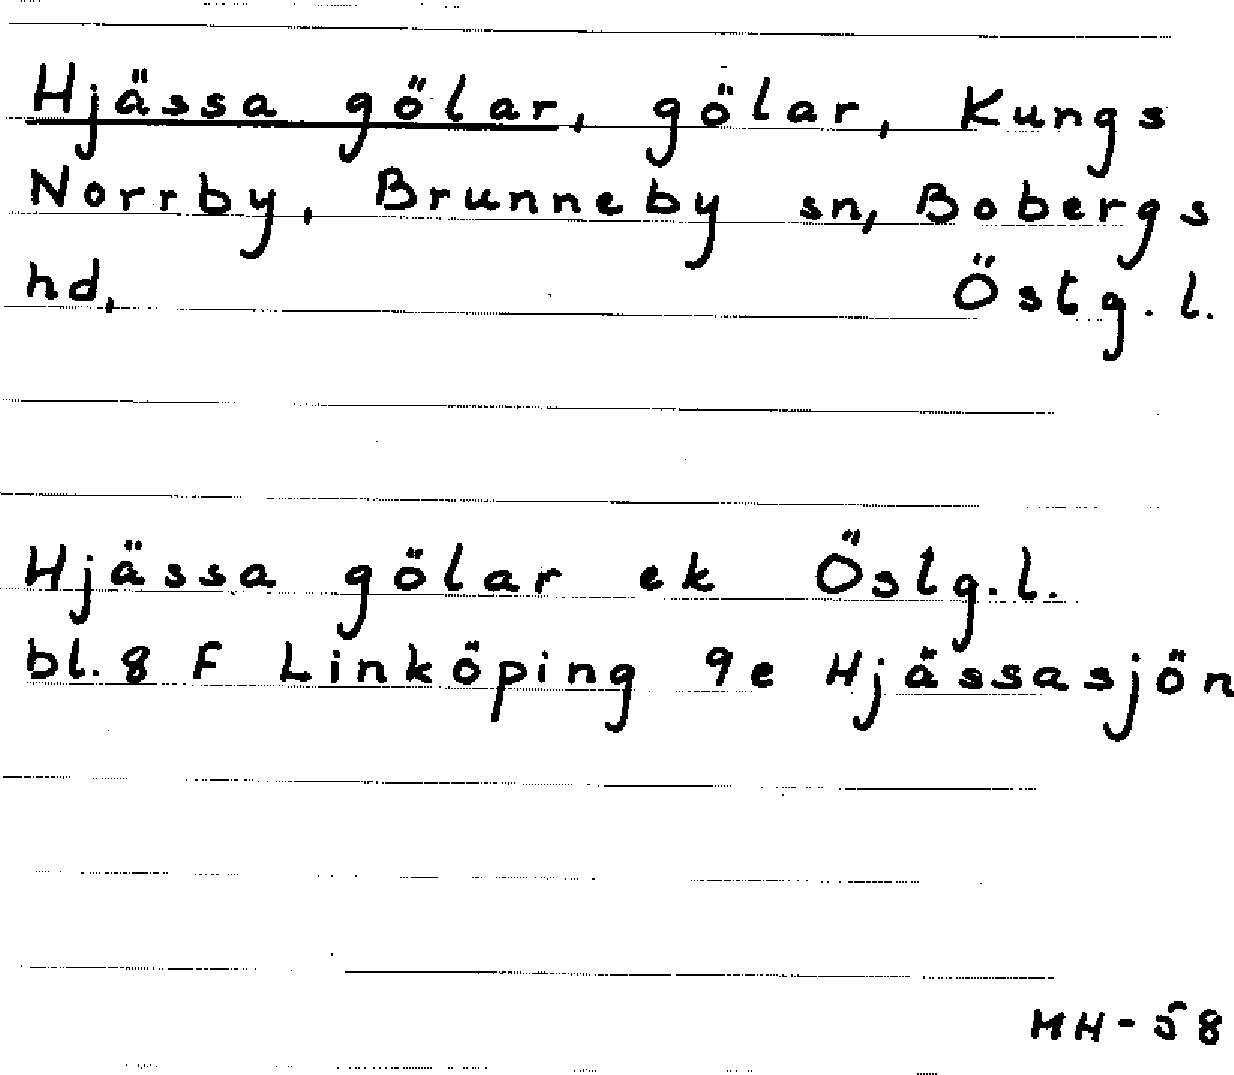 Hjässa gölar, gölar, Kungs
Norrby, Brunneby sn, Bobergs
hd, Östg.l.
Hjässa gölar ek Östg.l.
bl. 8 F Linköping 9e Hjässasjön
MH-58